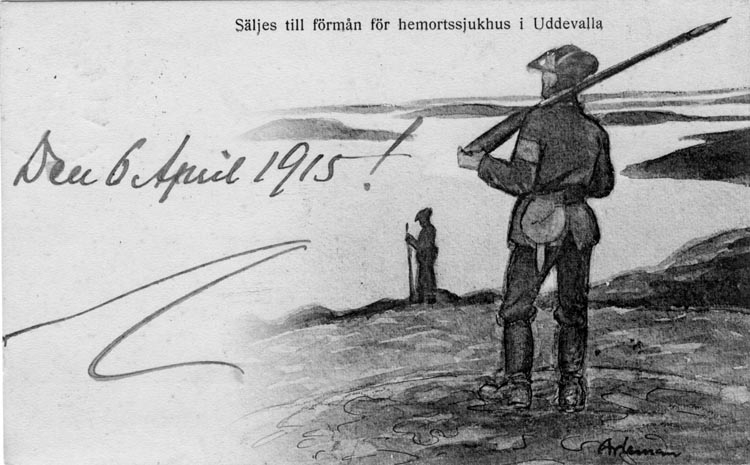 Säljes till förmån för hemortssjukhus i Uddevalla
Den 6 April 1915!